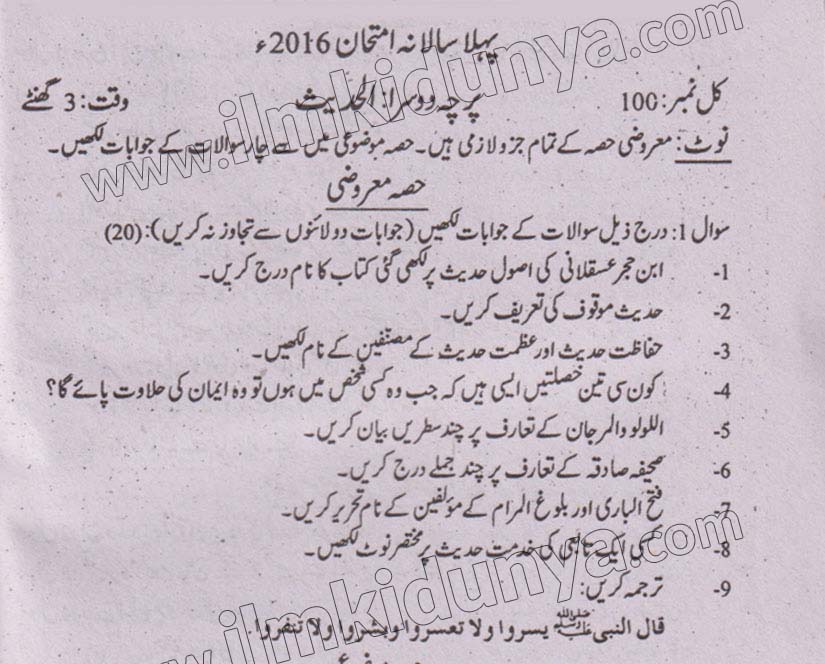 پہلا سالانہ امتحان 2016ء
کل نمبر: 100 پرچہ دوسرا: الحدیث وقت: 3 گھنٹے
نوٹ: معروضی حصہ کے تمام جزو لازمی ہیں۔ حصہ موضوعی میں سے چار سوالات کے جوابات لکھیں۔
حصہ معروضی
سوال 1: درج ذیل سوالات کے جوابات لکھیں (جوابات دو لائنوں سے تجاوز نہ کریں): (20)
1- ابن حجر عسقلانی کی اصول حدیث پر لکھی گئی کتاب کا نام درج کریں۔
2- حدیث موقوف کی تعریف کریں۔
3- حفاظت حدیث اور عظمت حدیث کے مصنّفین کے نام لکھیں۔
4- کون سی تین خصلتیں ایسی ہیں کہ جب وہ کسی شخص میں ہوں تو وہ ایمان کی حلاوت پائے گا؟
5- اللولو والمرجان کے تعارف پر چند سطریں بیان کریں۔
6- صحیفہ صادقہ کے تعارف پر چند جملے درج کریں۔
7- فتح الباری اور بلوغ المرام کے مؤلفین کے نام تحریر کریں۔
8- کسی ایک تابعی کی خدمت حدیث پر مختصر نوٹ لکھیں۔
9- ترجمہ کریں:
قال النبی ﷺ یسروا ولا تعسروا وبشروا ولا تنفروا.
www.ilmkidunya.com
www.ilmkidunya.com